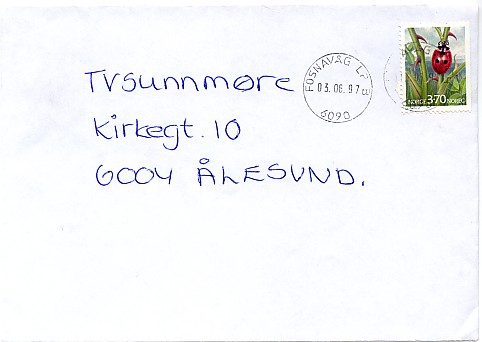 TVSunnmøre
Kirkegt. 10
6004 ÅLESUND.
FOSNAVÅG
03.06.97
6090
NORGE 370 NOREG